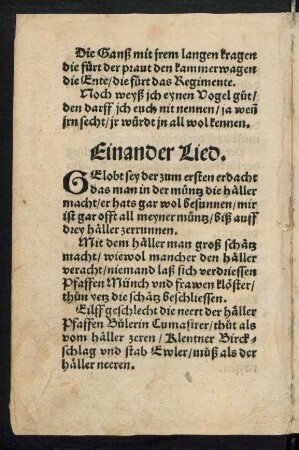 Die Ganß mit jrem langen kragen
die fürt der praut den kammerwagen
die Ente/die fürt das Regimente.
Noch weyß jch eynen Vogel güt/
den darff jch euch nit nennen/ja weñ
jrn secht/jr würdt jn all wol kennen.
Ein ander Lied.
GElobt sey der zum ersten erdacht
das man in der müntz die häller
macht/er hats gar wol besunnen/mir
ist gar offt all meyner müntz/biß auff
drey häller zerrunnen.
Mit dem häller man groß schätz
macht/wiewol mancher den häller
veracht/niemand laß sich verdriessen
Pfaffen Münch vnd frawen klöster/
thün yetz die schätz beschliessen.
Eilff geschlecht die neert der häller
Pfaffen Bülerin Cumasirer/thüt als
vom häller zeren/Klentner Birck-
schlag vnd stab Ewler/müß als der
häller neeren.